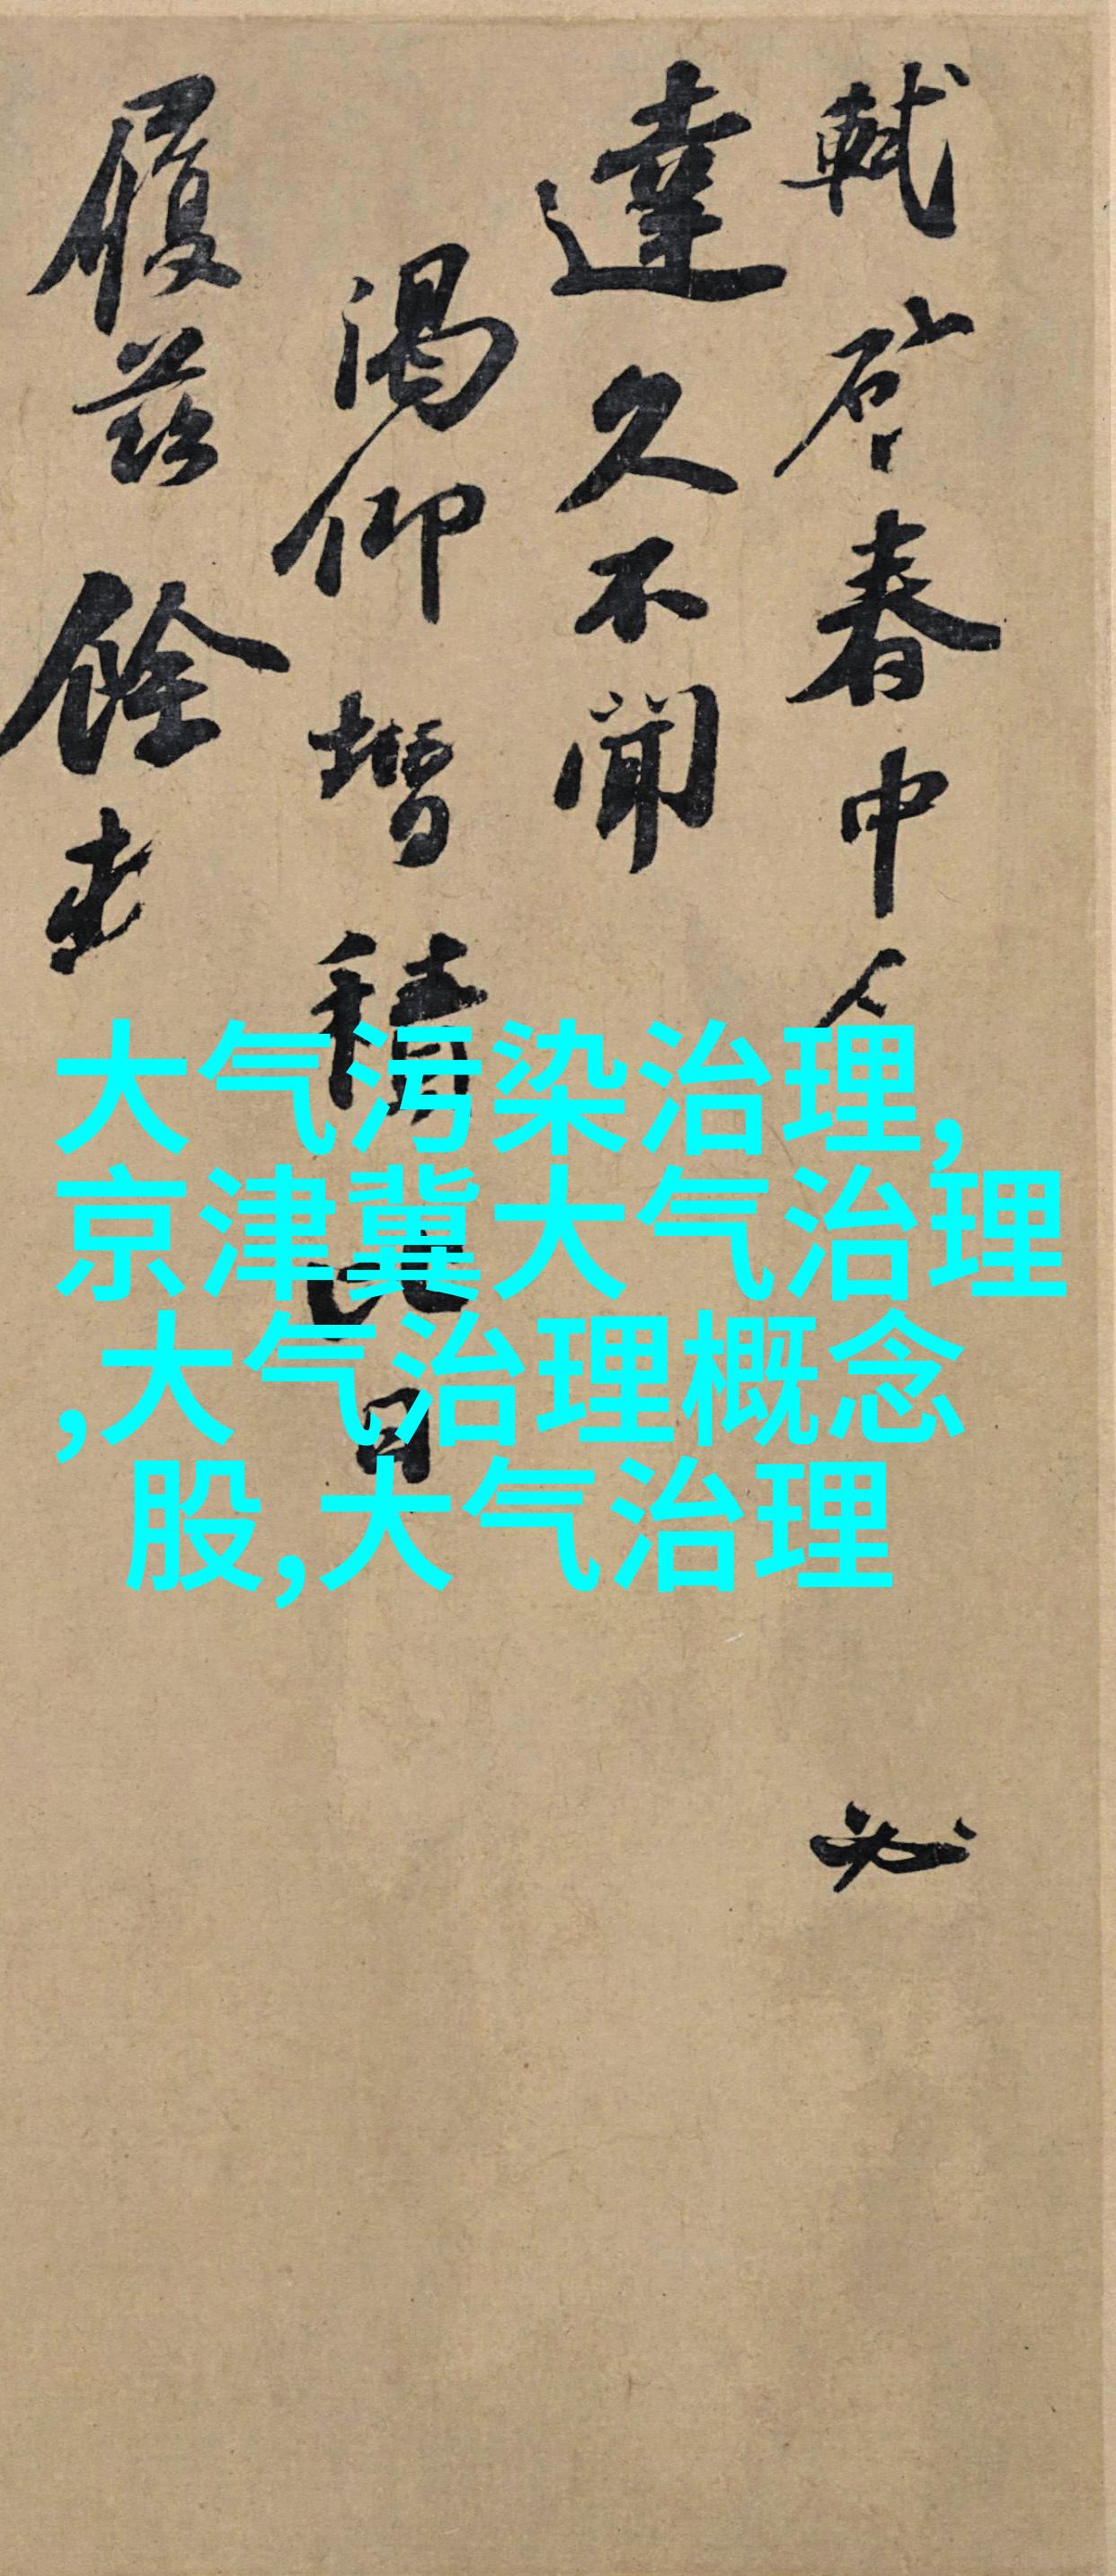 軾啓春中人
必
達久不聞
渴仰增積比日
履茲餘寒
大气污染治理,
京津冀大气治理
,大气治理概念
股,大气治理